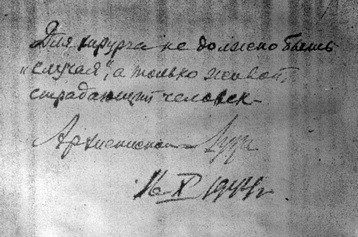 Для хирурга не должно быть
„случая“, а только живой,
страдающий человек –
Архиепископ Лука
16 X 1944 г.